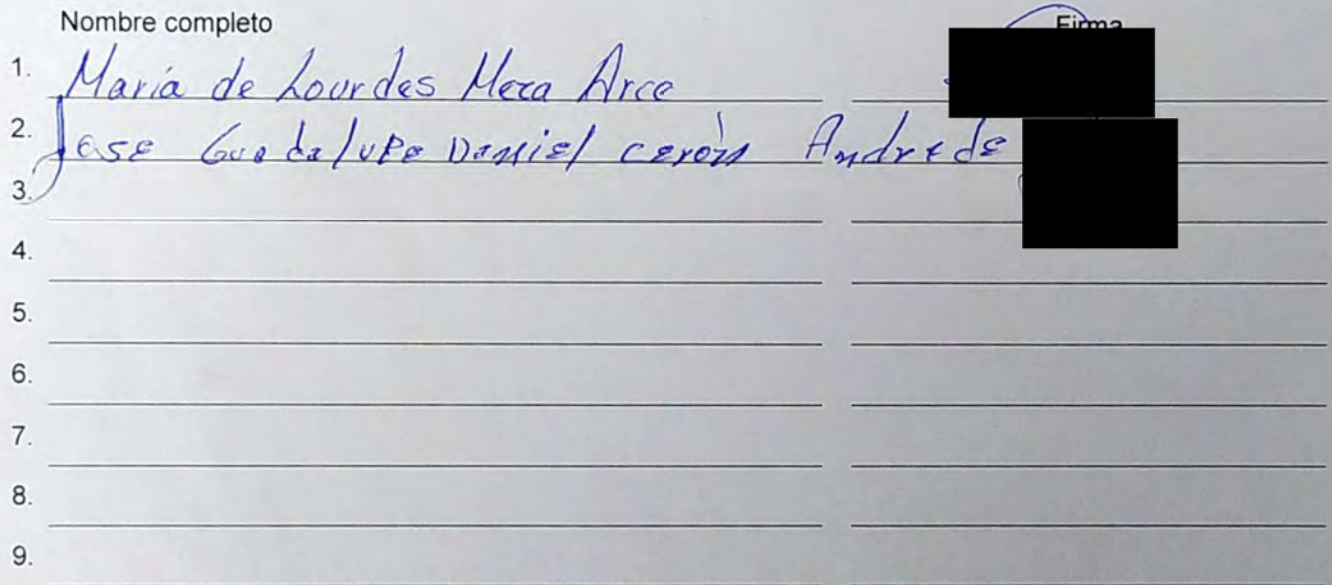 Nombre completo Firma
1. María de Lourdes Meza Arce
2. Jose Guadalupe Daniel cerón Andrade
3.
4.
5.
6.
7.
8.
9.